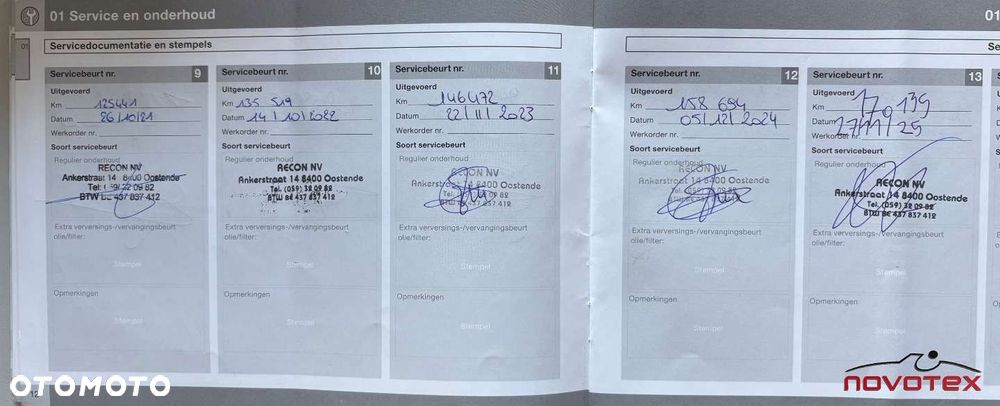 01 Service en onderhoud
01
01
Servicedocumentatie en stempels
Se
Servicebeurt nr. 9
Uitgevoerd
Km 125441
Datum 26/10/21
Werkorder nr.
Soort servicebeurt
Regulier onderhoud
RECON NV
Ankerstraat 14 8400 Oostende
Tel. (059) 32 09 82
BTW BE 437 837 412
Extra verversings-/vervangingsbeurt
olie/filter:
Stempel
Opmerkingen
Stempel
Servicebeurt nr. 10
Uitgevoerd
Km 135 519
Datum 14/10/2022
Werkorder nr.
Soort servicebeurt
Regulier onderhoud
RECON NV
Ankerstraat 14 8400 Oostende
Tel. (059) 32 09 82
BTW BE 437 837 412
Extra verversings-/vervangingsbeurt
olie/filter:
Stempel
Opmerkingen
Stempel
Servicebeurt nr. 11
Uitgevoerd
Km 146472
Datum 22/11/2023
Werkorder nr.
Soort servicebeurt
Regulier onderhoud
RECON NV
Ankerstraat 14 8400 Oostende
Extra verversings-/vervangingsbeurt
olie/filter:
Stempel
Opmerkingen
Stempel
Servicebeurt nr. 12
Uitgevoerd
Km 158 694
Datum 05/12/2024
Werkorder nr.
Soort servicebeurt
Regulier onderhoud
RECON NV
Ankerstraat 14 8400 Oostende
BTW BE 437 837 412
Extra verversings-/vervangingsbeurt
olie/filter:
Stempel
Opmerkingen
Stempel
Servicebeurt nr. 13
Uitgevoerd
Km 170 139
Datum 27/11/25
Werkorder nr.
Soort servicebeurt
Regulier onderhoud
RECON NV
Ankerstraat 14 8400 Oostende
Tel. (059) 32 09 82
BTW BE 437 837 412
Extra verversings-/vervangingsbeurt
olie/filter:
Stempel
Opmerkingen
12
OTOMOTO
NOVOTEX